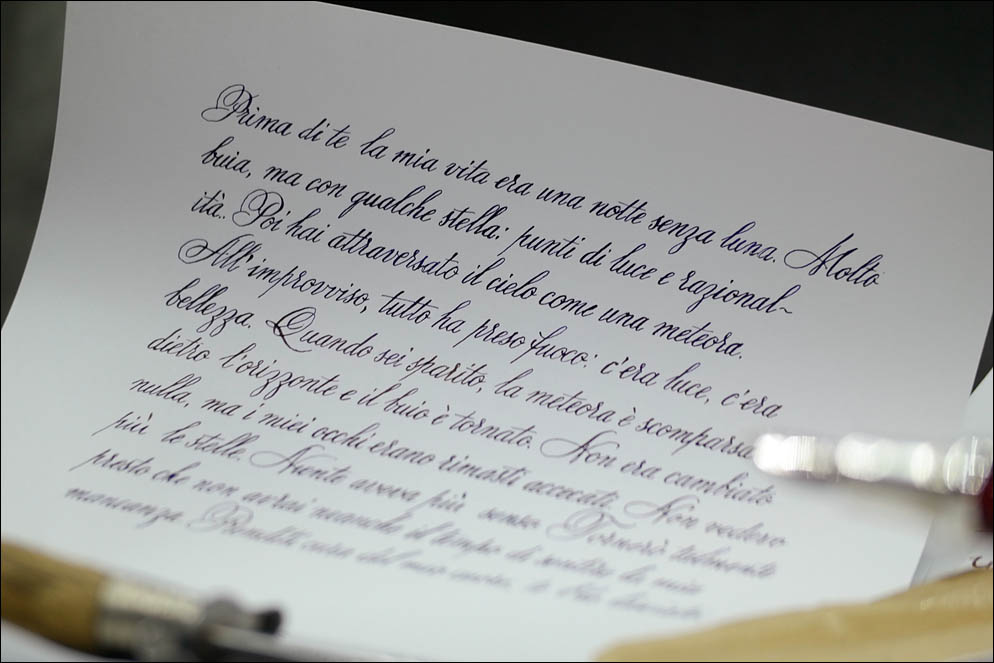 Prima di te la mia vita era una notte senza luna. Molto
buia, ma con qualche stella: punti di luce e razional~
ità.. Poi hai attraversato il cielo come una meteora.
All'improvviso, tutto ha preso fuoco: c'era luce, c'era
bellezza. Quando sei sparito, la meteora è scomparsa
dietro l'orizzonte e il buio è tornato. Non era cambiato
nulla, ma i miei occhi erano rimasti accecati. Non vedevo
più le stelle. Niente aveva più senso. Tornerò talmente
presto che non avrai neanche il tempo di sentire la mia
mancanza. Prenditi cura del mio cuore, l'ho